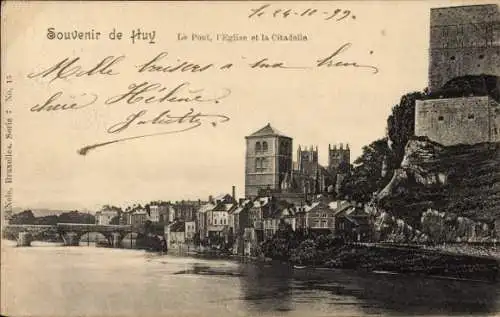 Souvenir de Huy
Le 24-10-99.
Le Pont, l'Eglise et la Citadelle.
Mille baisers à ma
chère Hélène
Juliette
Nels, Bruxelles, Serie 7 No. 15